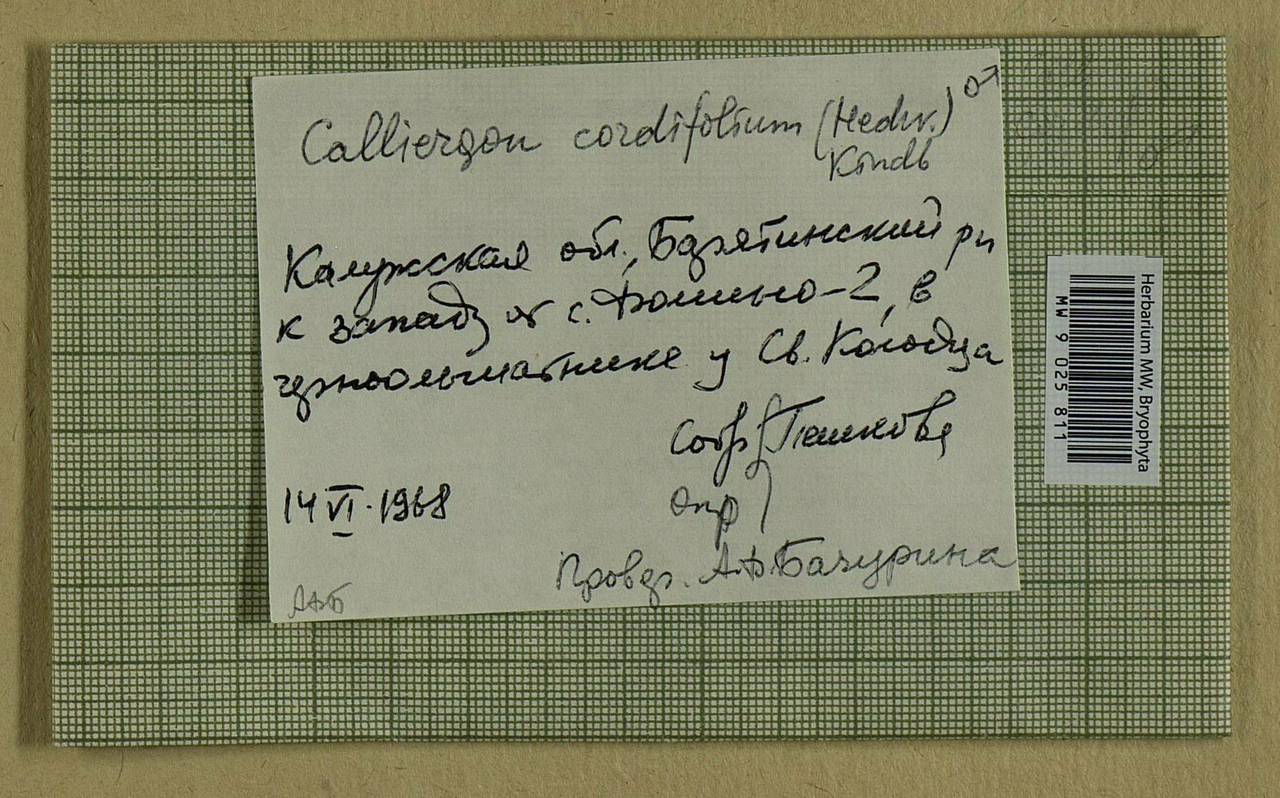 Calliergon cordifolium (Hedw.) ♂
Kindb
Калужская обл., Барятинский рн
к западу от с. Фомино-2, в
черноольшатнике у Св. Колодца
собр Пешкова
опр
14 VI. 1968
Провер. А.Ф. Бачурина
АФБ
Herbarium MW, Bryophyta
MW 9 025 811